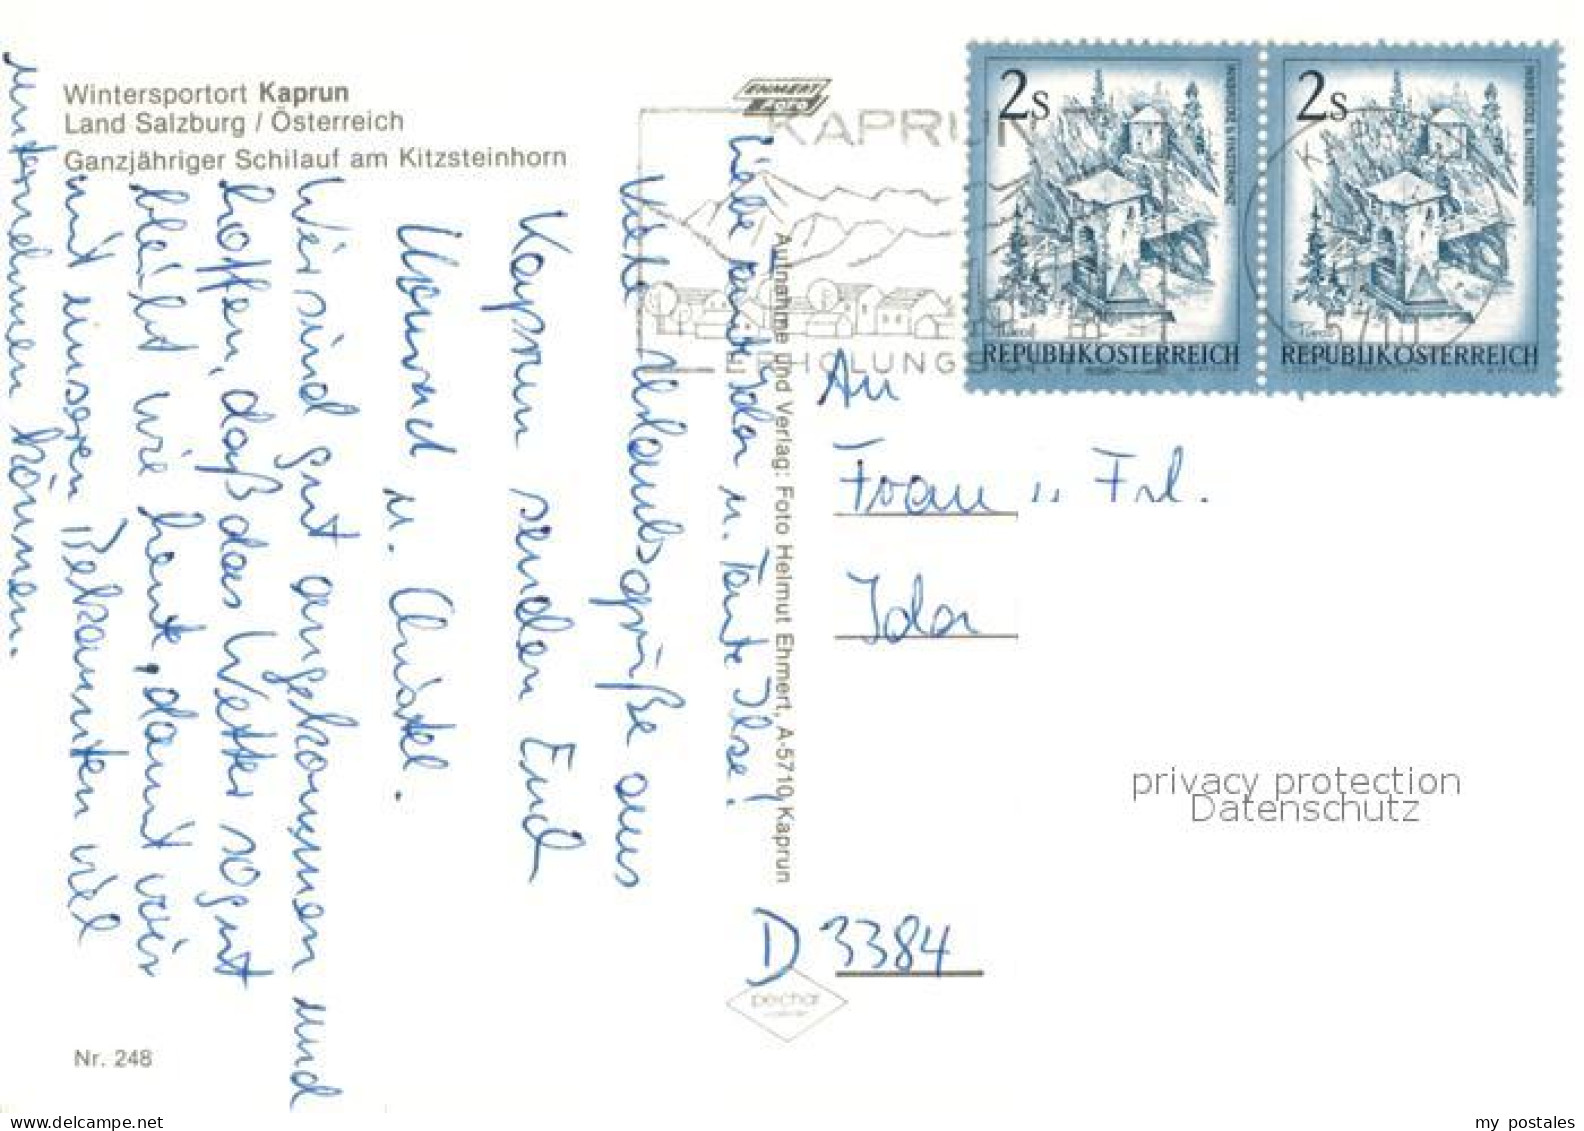 Wintersportort Kaprun
Land Salzburg / Österreich
Ganzjähriger Schilauf am Kitzsteinhorn
EHMERT
FOTO
KAPRUN
ERHOLUNGS
2s
REPUBLIK ÖSTERREICH
2s
REPUBLIK ÖSTERREICH
5710
Liebe Tante Ida u. Tante Ilse!
Viele Urlaubsgrüße aus
Kaprun senden Euch
Konrad u. Christel.
Wir sind gut angekommen und
hoffen, daß das Wetter so gut
bleibt wie heute, damit wir
mit unseren Bekannten viel
unternehmen können.
Aufnahme und Verlag: Foto Helmut Ehmert, A-5710 Kaprun
An
Frau u. Frl.
Ida
D 3384
pechar
Nr. 248
privacy protection
Datenschutz
www.delcampe.net
my postales